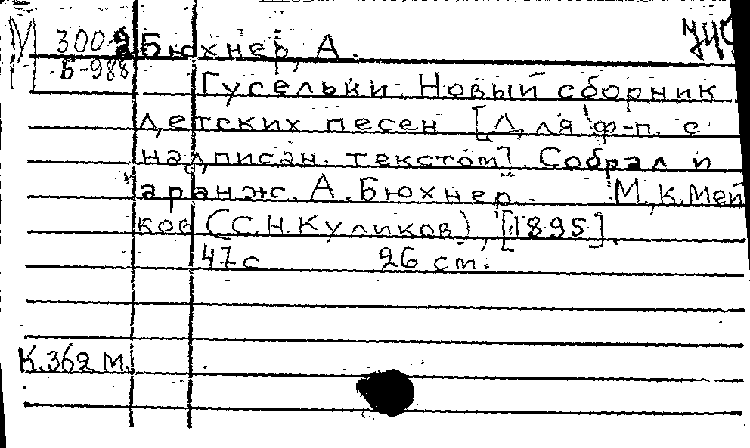 М 300 Бюхнер, А.
Б-988
Гусельки. Новый сборник
детских песен [Для ф-п. с
надписан. текстом]. Собрал и
аранж. А. Бюхнер. М., К. Мей
ков (С.Н. Куликов), [1895].
47 с 26 см.
К.362 М.